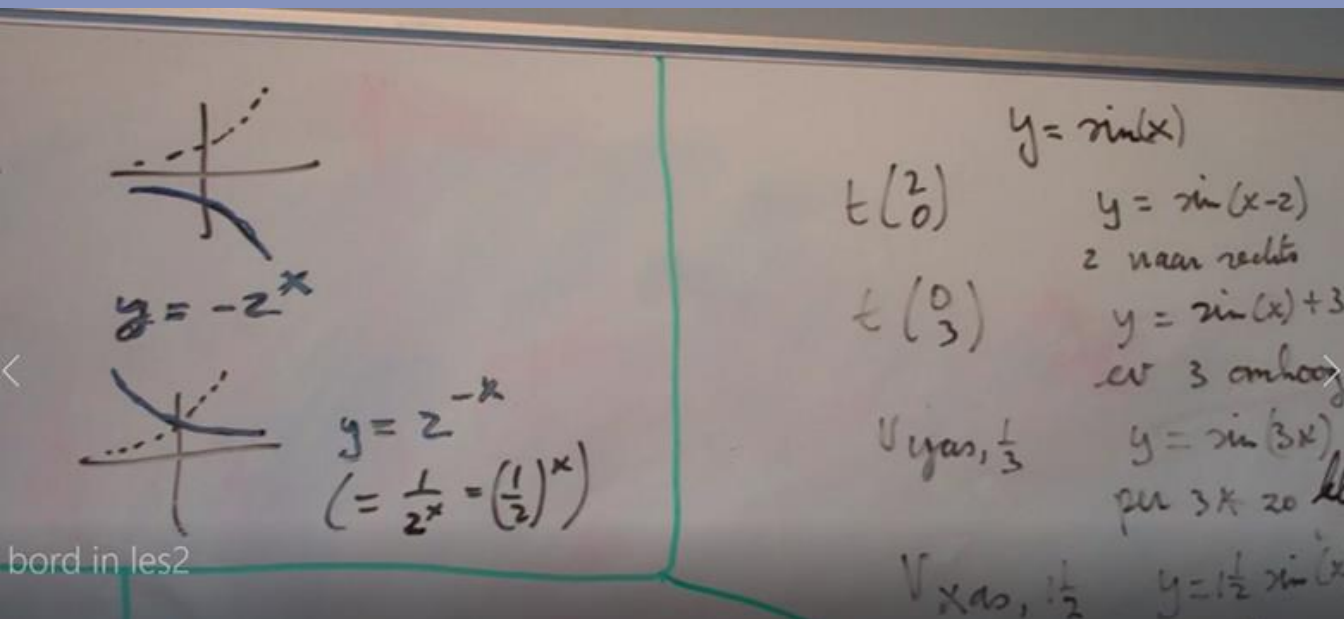 y = -2^x
y = 2^-x
(= 1/2^x = (1/2)^x)
bord in les2
y = sin(x)
t(2 0) y = sin(x-2)
2 naar rechts
t(0 3) y = sin(x) + 3
ev 3 omhoog
V yas, 1/3 y = sin(3x)
per 3x zo
V xas, 1 1/2 y = 1 1/2 sin(x